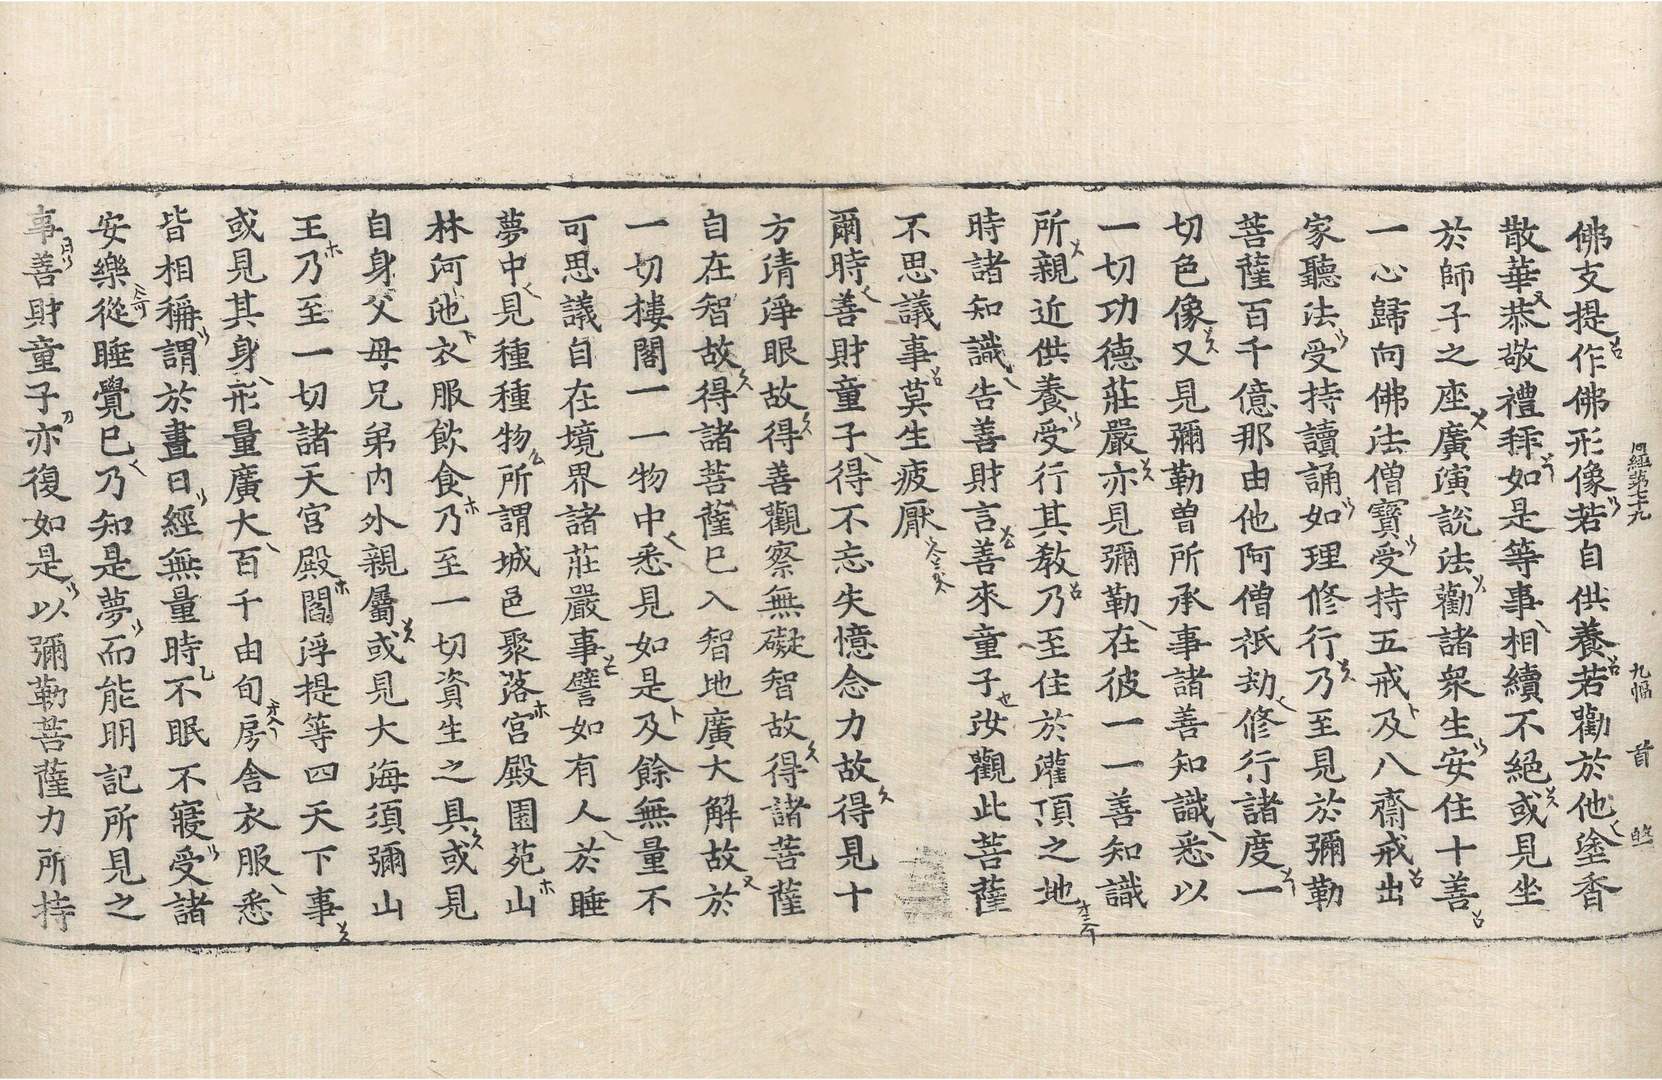 同經第七十九 九幅 首
佛支提作佛形像若自供養若勸於他塗香
散華恭敬禮拜如是等事相續不絕或見坐
於師子之座廣演說法勸諸眾生安住十善
一心歸向佛法僧寶受持五戒及八齋戒出
家聽法受持讀誦如理修行乃至見於彌勒
菩薩百千億那由他阿僧祇劫修行諸度一
切色像又見彌勒曾所承事諸善知識悉以
一切功德莊嚴亦見彌勒在彼一一善知識
所親近供養受行其教乃至住於灌頂之地
時諸知識告善財言善來童子汝觀此菩薩
不思議事莫生疲厭
爾時善財童子得不忘失憶念力故得見十
方清淨眼故得善觀察無礙智故得諸菩薩
自在智故得諸菩薩已入智地廣大解故於
一切樓閣一一物中悉見如是及餘無量不
可思議自在境界諸莊嚴事譬如有人於睡
夢中見種種物所謂城邑聚落宮殿園苑山
林河池衣服飲食乃至一切資生之具或見
自身父母兄弟內外親屬或見大海須彌山
王乃至一切諸天宮殿閻浮提等四天下事
或見其身形量廣大百千由旬房舍衣服悉
皆相稱謂於晝日經無量時不眠不寢受諸
安樂從睡覺已乃知是夢而能明記所見之
事善財童子亦復如是以彌勒菩薩力所持